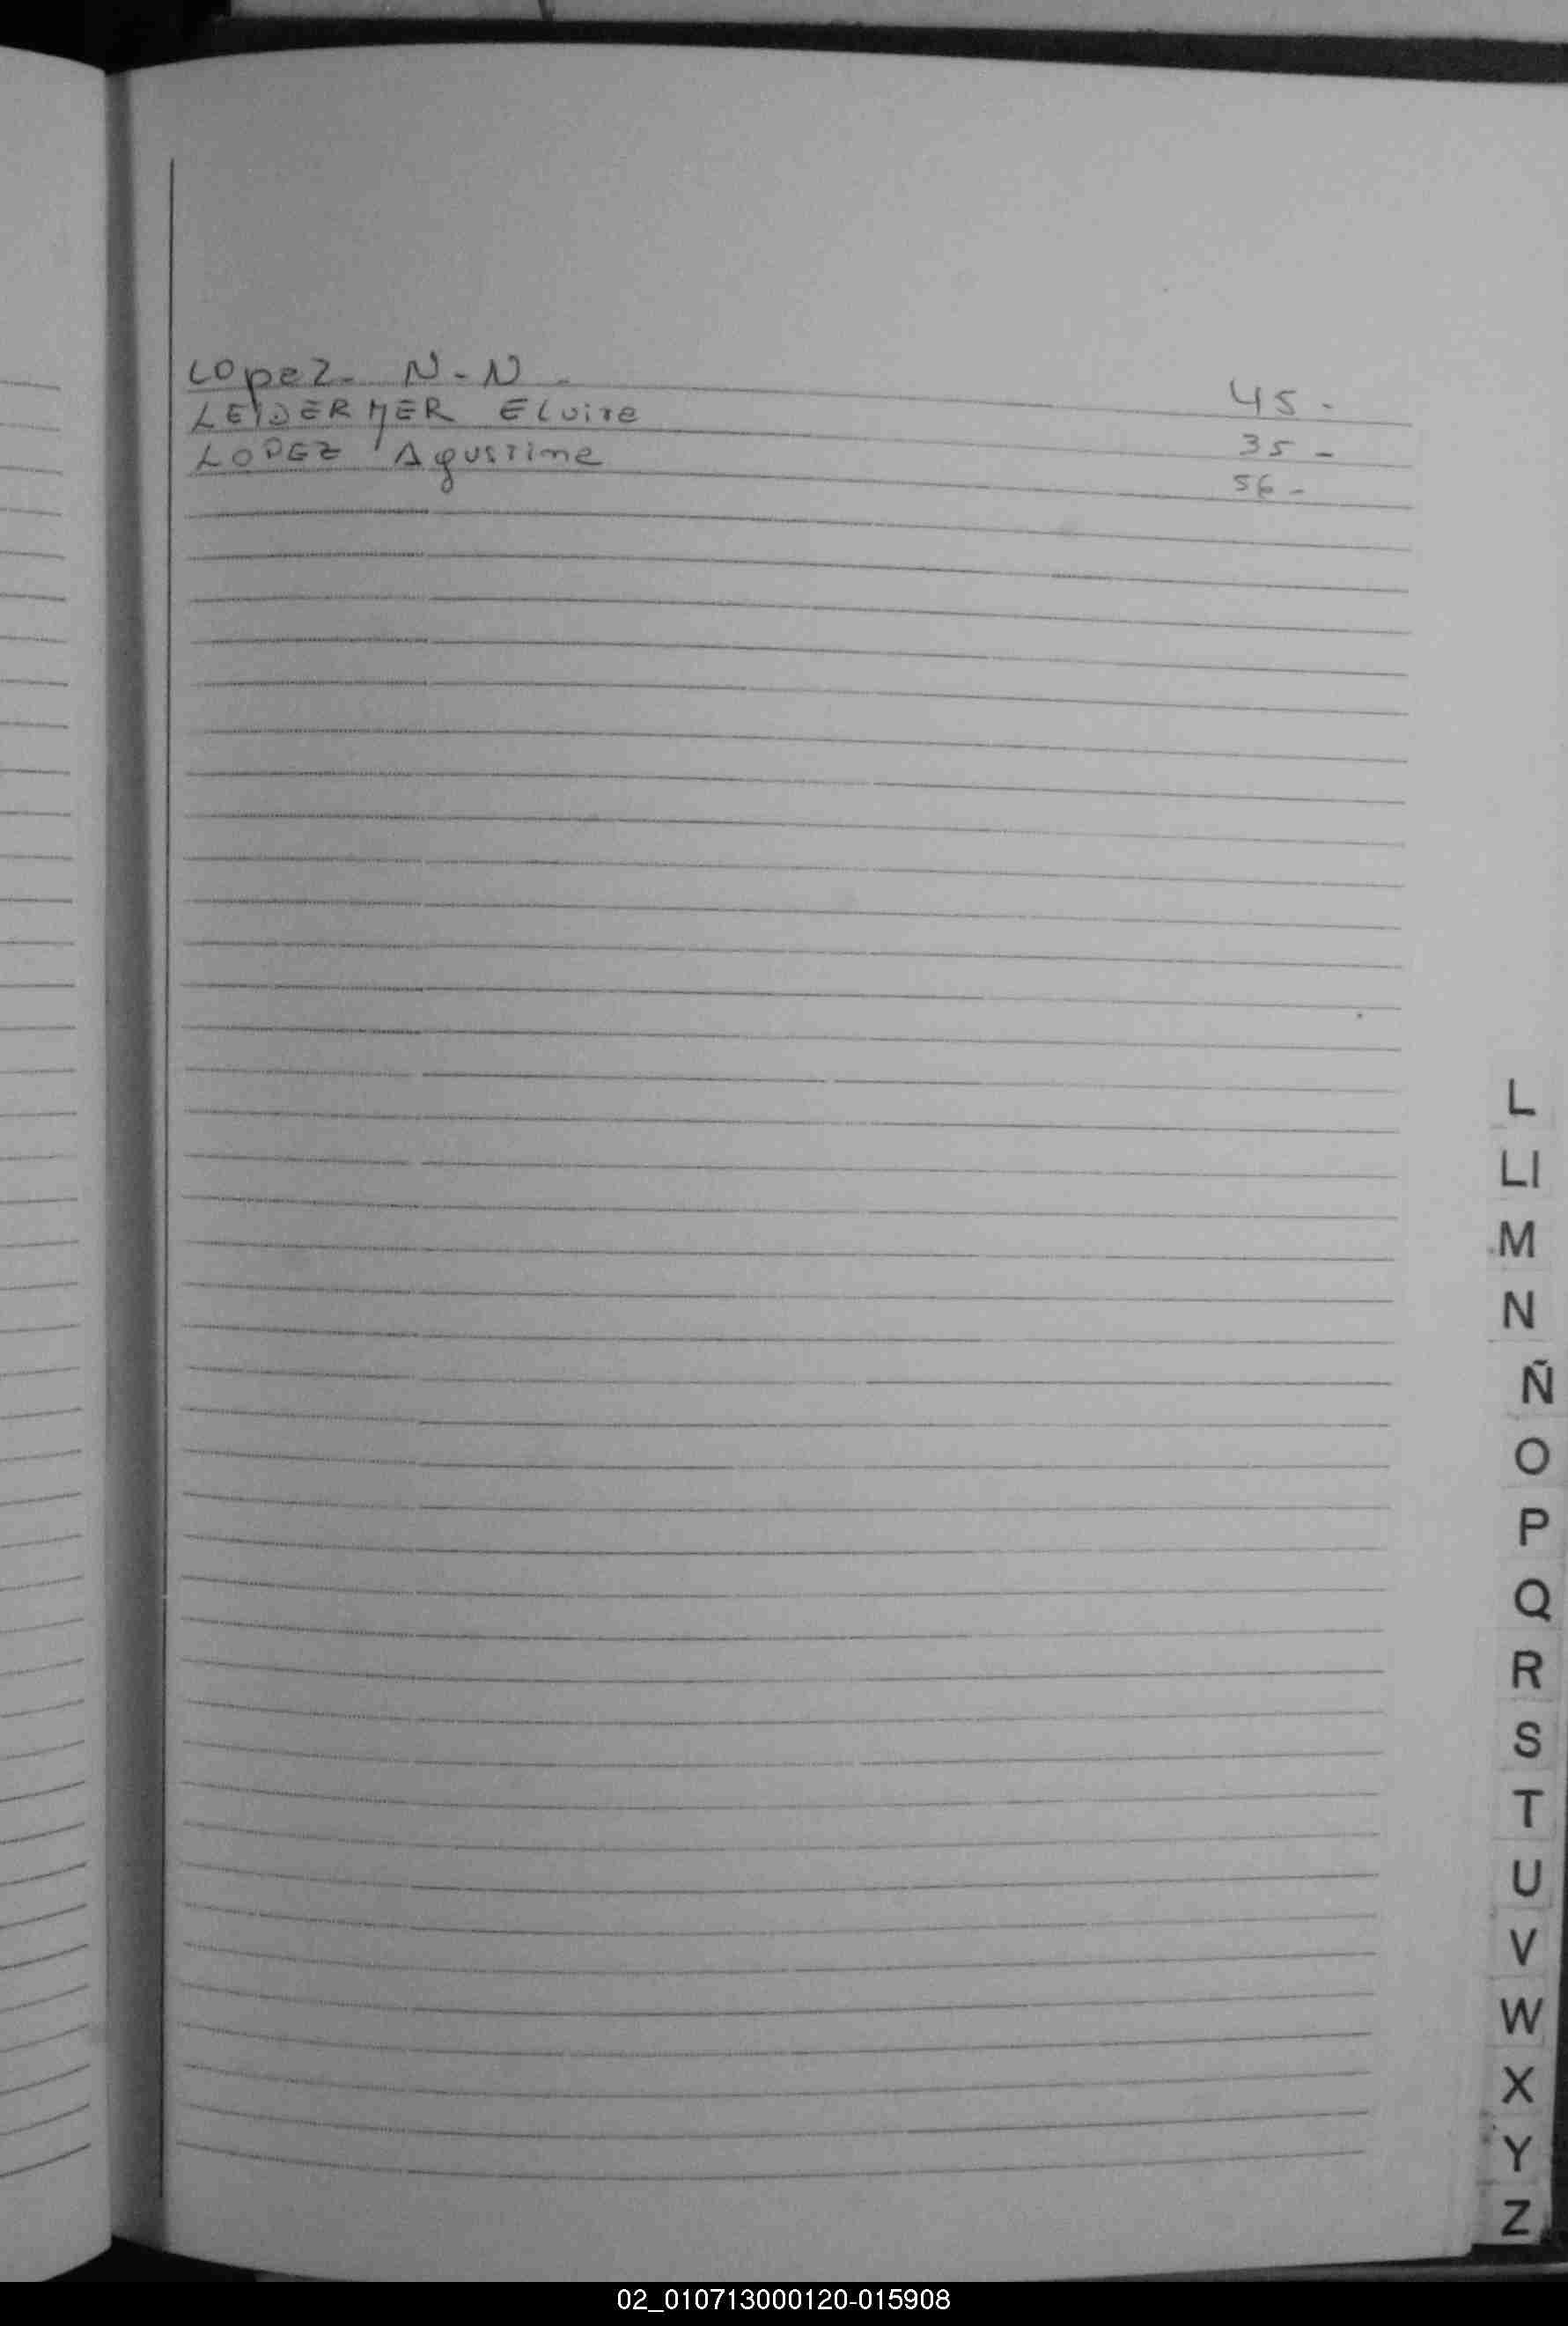 Lopez- N-N - 45 -
LEIDERMER Elvira 35 -
LOPEZ Agustina 56 -
L
Ll
M
N
Ñ
O
P
Q
R
S
T
U
V
W
X
Y
Z
02_010713000120-015908